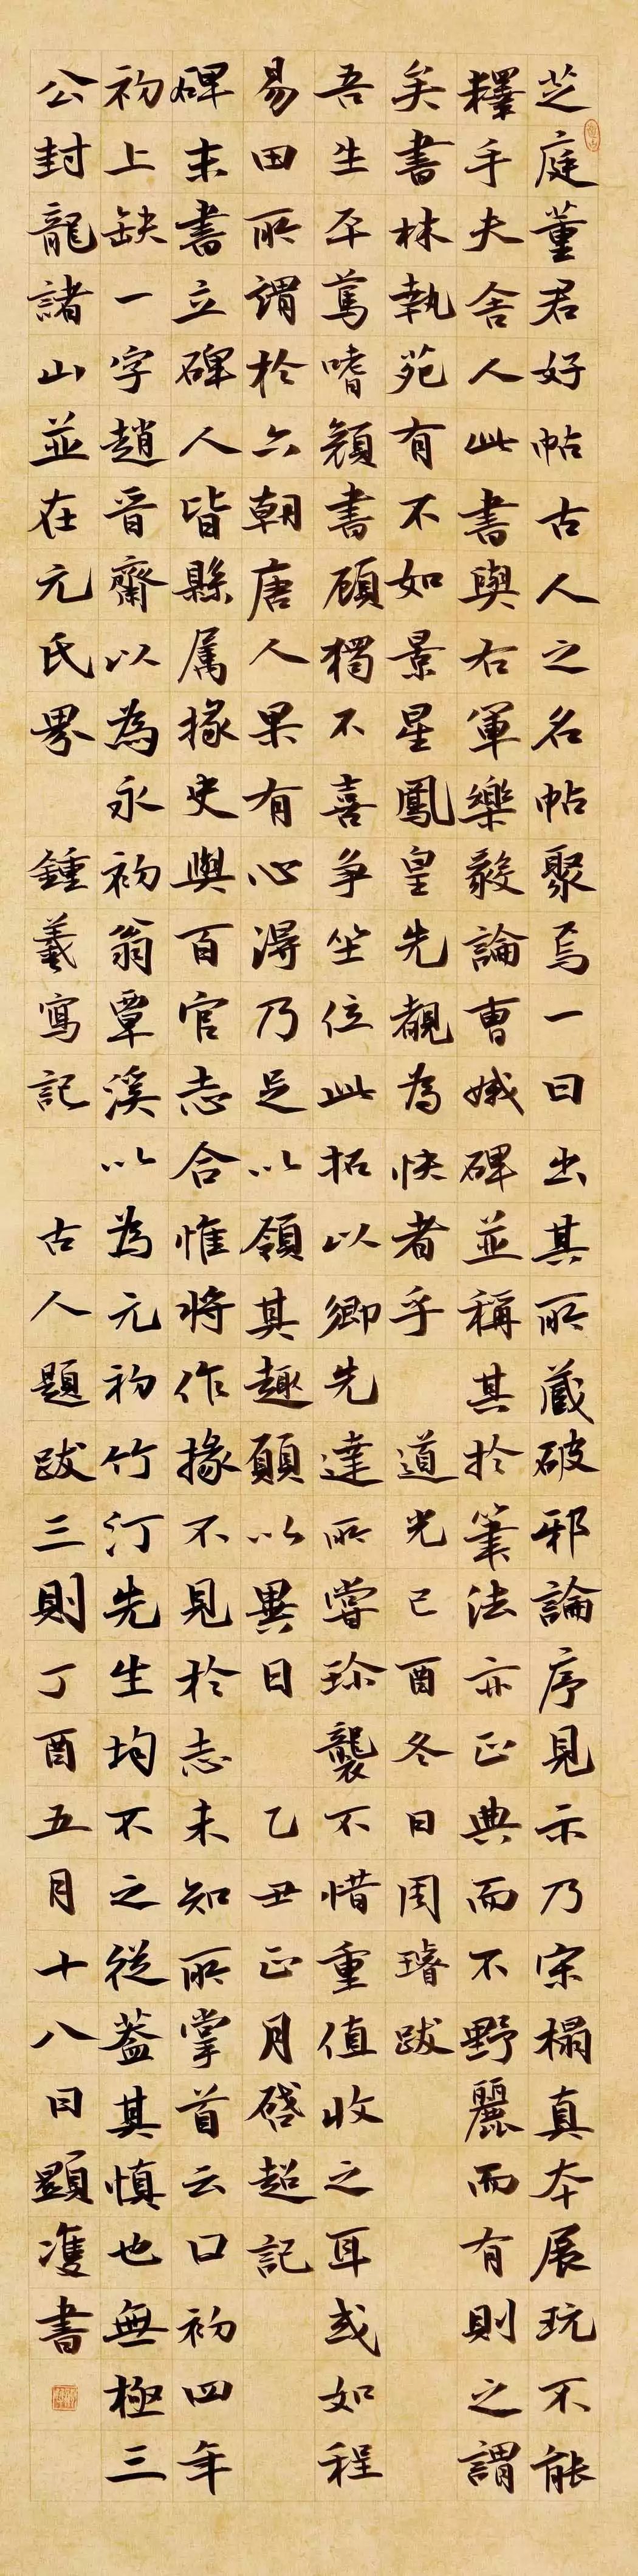 芝庭董君好帖古人之名帖聚焉一日出其所蔵破邪論序見示乃宋榻真本展玩不能
釋手夫舍人此書與右軍樂毅論曹娥碑並稱其於筆法亦正典而不野麗而有則之謂
矣書林執苑有不如景星鳳皇先覩為快者乎 道光己酉冬日周璿跋
吾生平篤嗜顏書顧獨不喜爭坐位此拓以卿先達所嘗珎襲不惜重值收之耳或如程
易田所謂於六朝唐人果有心淂乃足以領其趣願以異日 乙丑正月啓超記
碑末書立碑人皆縣属掾史與百官志合惟将作掾不見於志未知所掌首云口初四年
初上缺一字趙晋齋以為永初翁覃溪以為元初竹汀先生均不之從葢其慎也無極三
公封龍諸山並在元氏界 鍾羲寫記 古人題跋三則丁酉五月十八日顕濩書